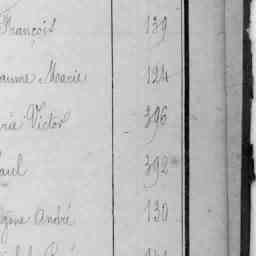 François 139
aume Marie 124
rie Victor 396
Paul 392
gène André 130